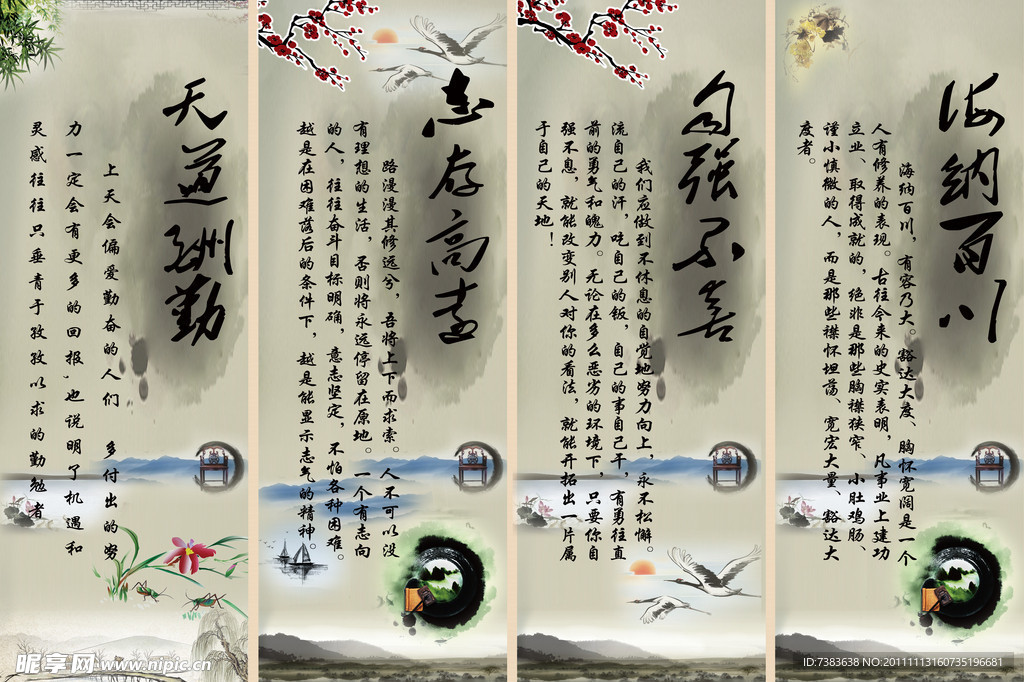 天道酬勤
上天会偏爱勤奋的人们 多付出的努
力一定会有更多的回报，也说明了机遇和
灵感往往只垂青于孜孜以求的勤勉者
志存高远
路漫漫其修远兮，吾将上下而求索。人不可以没
有理想的生活，否则将永远停留在原地。一个有志向
的人，往往奋斗目标明确，意志坚定，不怕各种困难。
越是在困难落后的条件下，越是能显示志气的精神。
自强不喜
我们应做到不休息的自觉地努力向上，永不松懈。
流自己的汗，吃自己的饭，自己的事自己干，有勇往直
前的勇气和魄力。无论在多么恶劣的环境下，只要你自
强不息，就能改变别人对你的看法，就能开拓出一片属
于自己的天地！
海纳百川
海纳百川，有容乃大。豁达大度、胸怀宽阔是一个
人有修养的表现。古往今来的史实表明，凡事业上建功
立业、取得成就的，绝非是那些胸襟狭窄、小肚鸡肠、
谨小慎微的人，而是那些襟怀坦荡、宽宏大量、豁达大
度者。
昵享网 www.nipic.cn
ID:7383638 NO:20111113160735196681